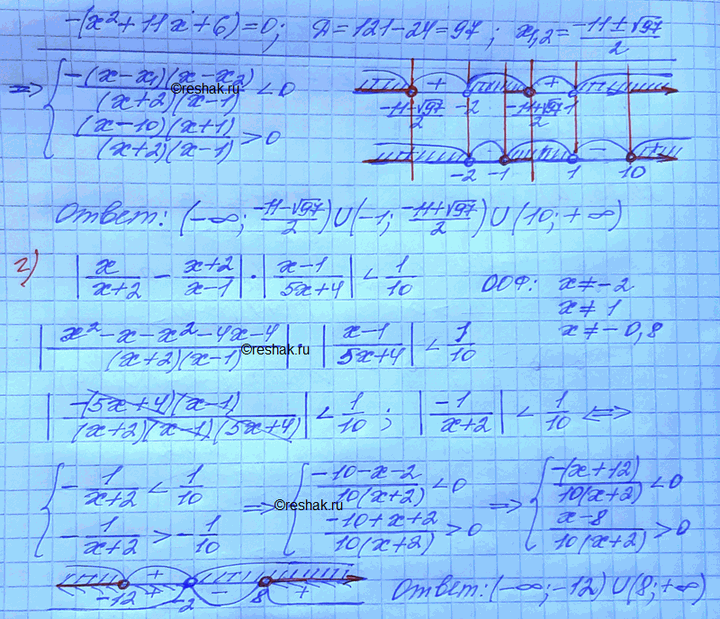 -(x²+11x+6)=0; Д=121-24=97; x₁,₂=(-11±√97)/2
⇒ { (-(x-x₁)(x-x₂))/((x+2)(x-1)) < 0
((x-10)(x+1))/((x+2)(x-1)) > 0
©reshak.ru
+ +
(-11-√97)/2 -2 (-11+√97)/2 1
- +
-2 -1 1 10
Ответ: (-∞; (-11-√97)/2) ∪ (-1; (-11+√97)/2) ∪ (10; +∞)
2) |x/(x+2) - (x+2)/(x-1)| · |(x-1)/(5x+4)| < 1/10 ООФ: x≠-2
x≠1
x≠-0,8
|(x²-x-x²-4x-4)/((x+2)(x-1))| |(x-1)/(5x+4)| < 1/10
©reshak.ru
|(-(5x+4)(x-1))/((x+2)(x-1)(5x+4))| < 1/10; |-1/(x+2)| < 1/10 ⇔
{ -1/(x+2) < 1/10 ⇒ { (-10-x-2)/(10(x+2)) < 0 ⇒ { (-(x+12))/(10(x+2)) < 0
-1/(x+2) > -1/10 (-10+x+2)/(10(x+2)) > 0 (x-8)/(10(x+2)) > 0
©reshak.ru
- + - - +
-12 + -2 - 8 +
Ответ: (-∞; -12) ∪ (8; +∞)